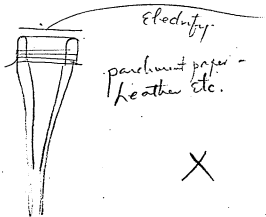 Electrify.
parchment paper -
Leather Etc.
X